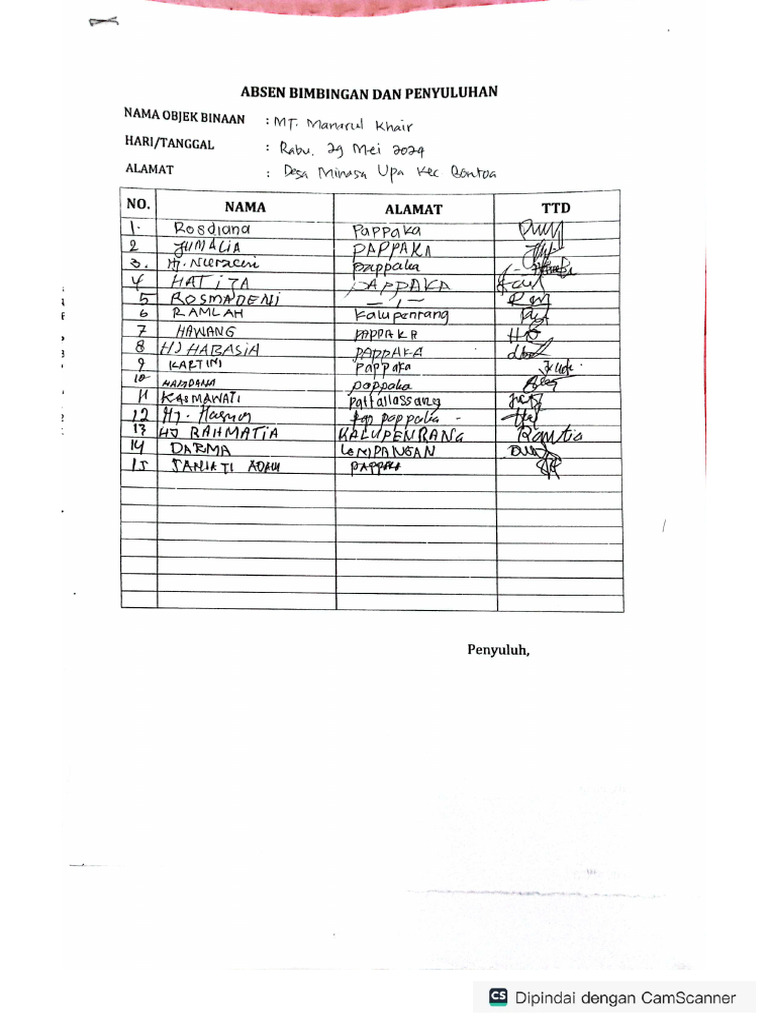 ABSEN BIMBINGAN DAN PENYULUHAN
NAMA OBJEK BINAAN : MT. Manarul Khair
HARI/TANGGAL : Rabu, 29 Mei 2024
ALAMAT : Desa Minasa Upa Kec Bontoa
NO. NAMA ALAMAT TTD
1. Rosdiana Pappaka
2 JUMALIA PAPPAKA
3. Hj. Nuraeni pappaka
4 HATIJA PAPPAKA
5 ROSMADENI — , —
6 RAMLAH Kalupenrang
7 HAWANG PAPPAKA
8 HJ HABASIA PAPPAKA
9 KARTINI Pappaka
10 HAMDANA pappaka
11 KASMAWATI pattallassang
12 Hj. pappaka -
13 HJ RAHMATIA KALUPENRANG Ramtia
14 DARMA LEMPANGAN
15 PAPPAKA
Penyuluh,
CS Dipindai dengan CamScanner